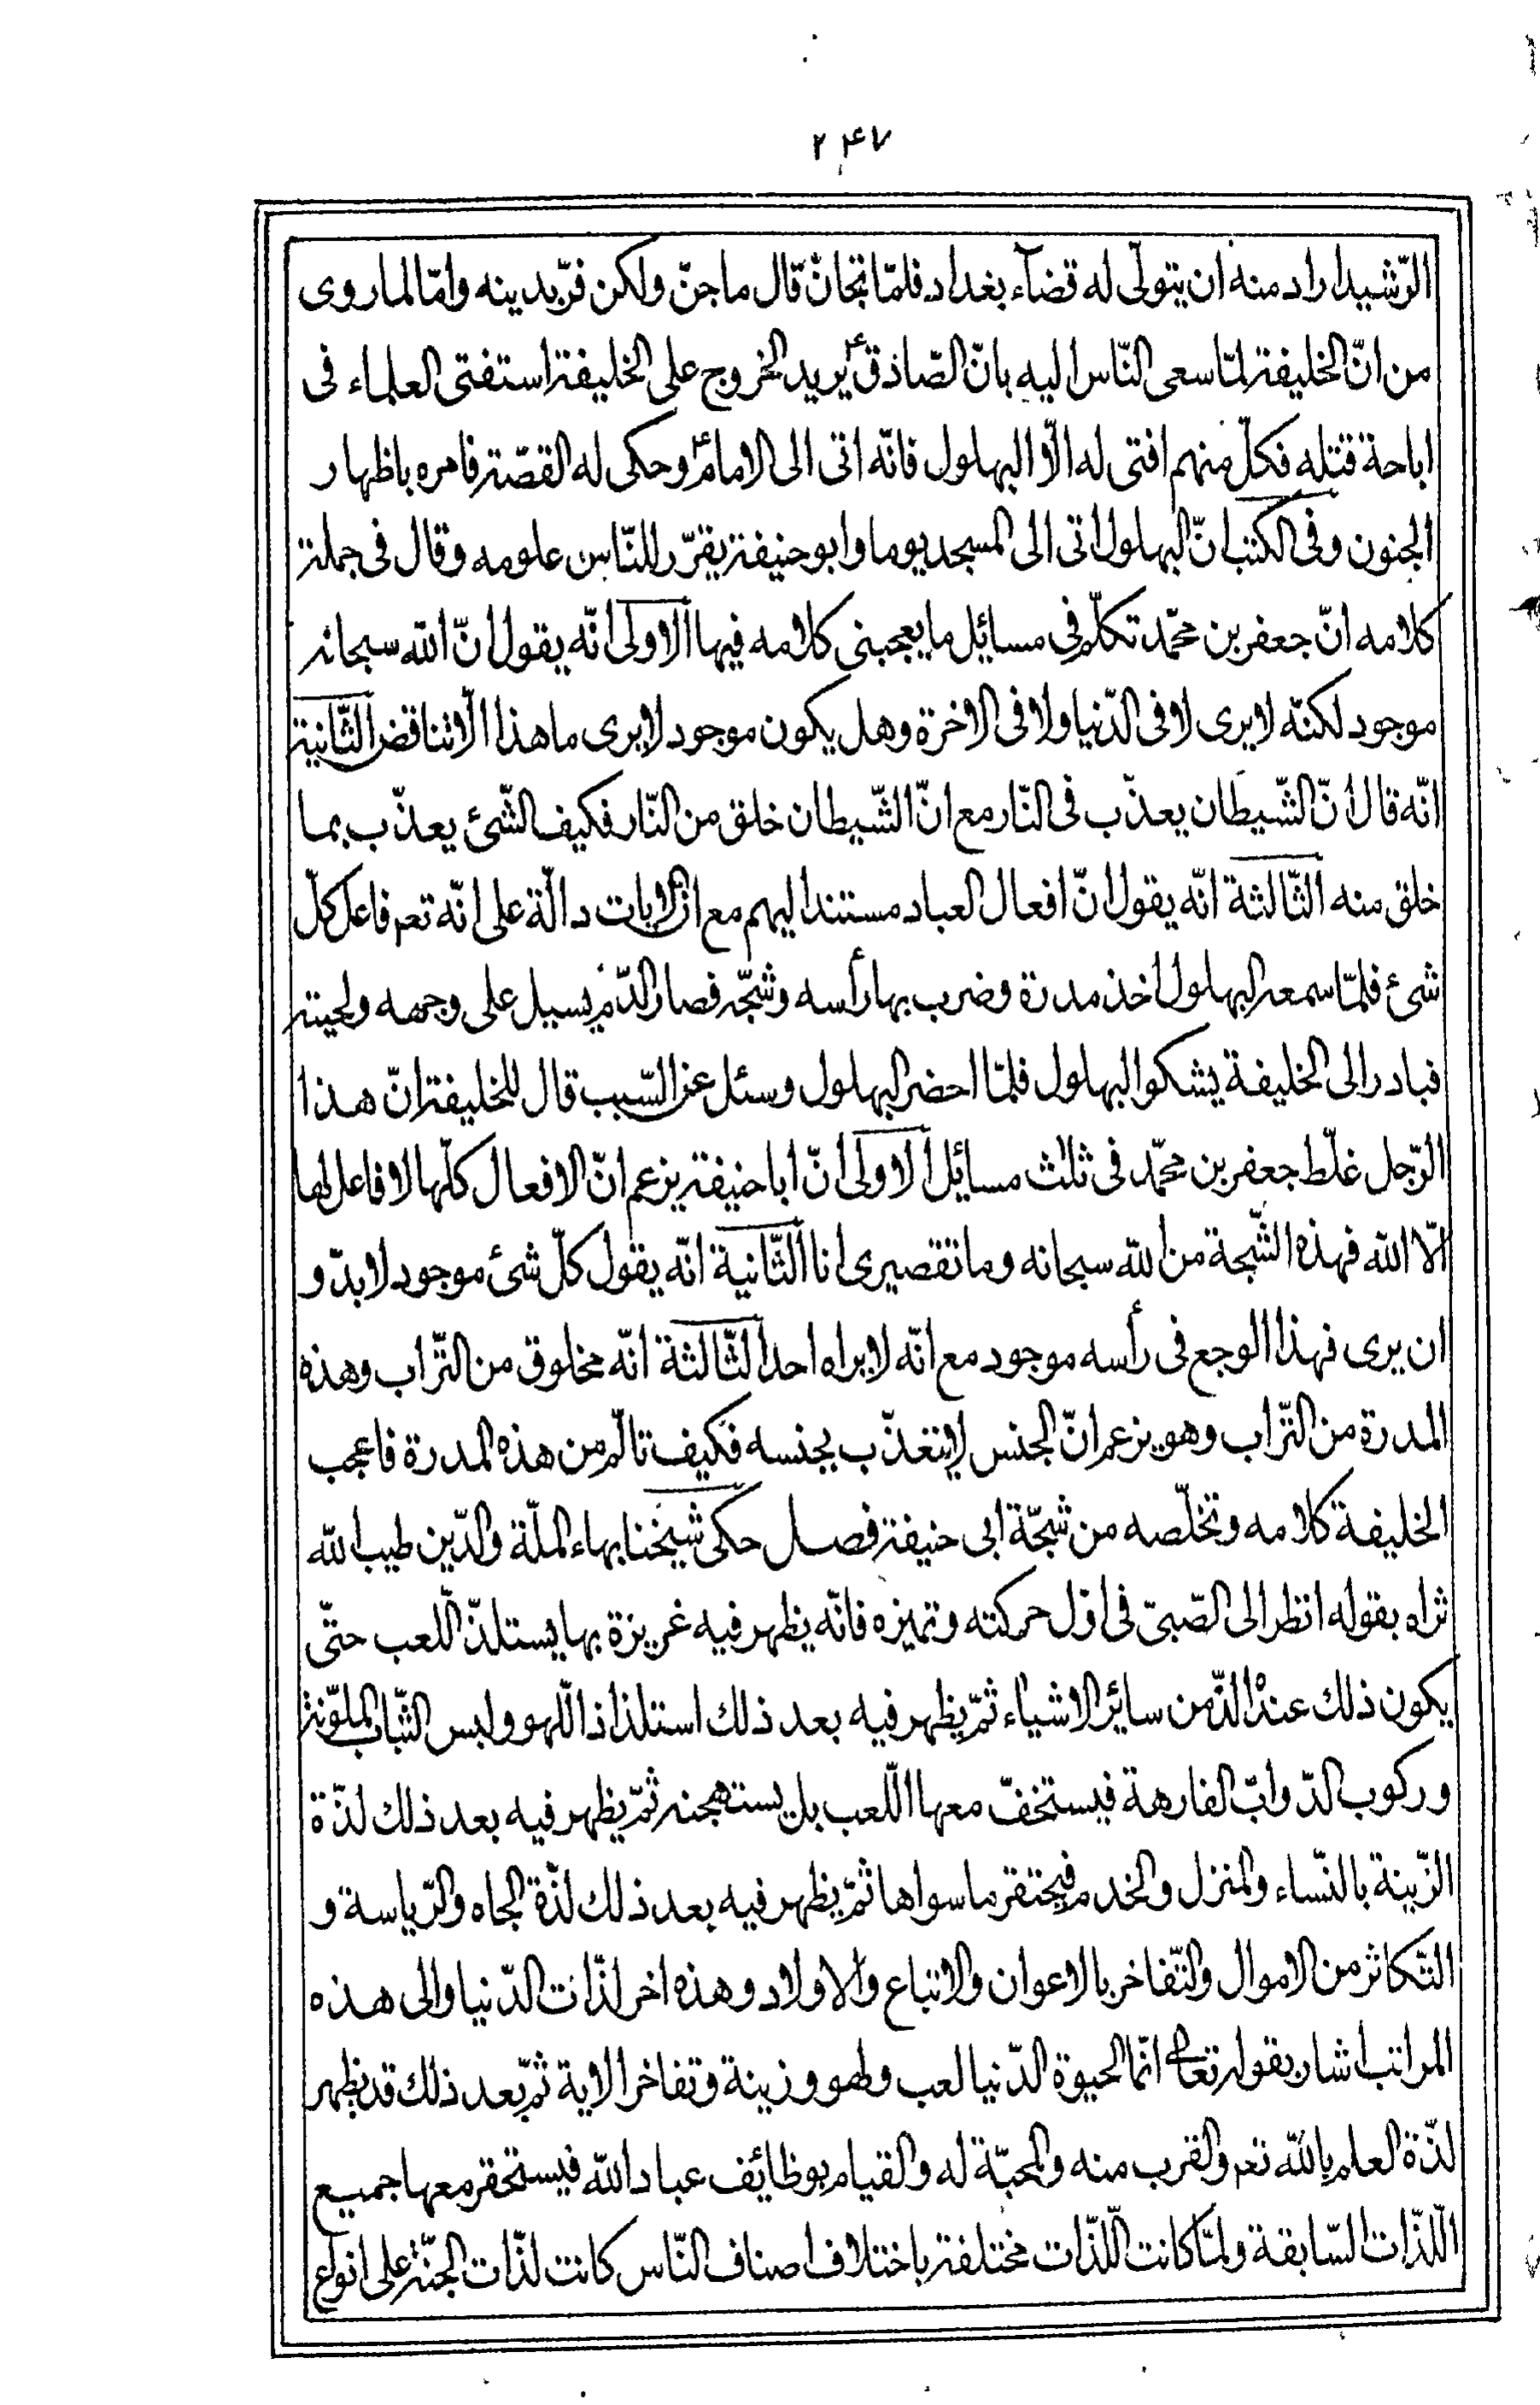 ۲۴۷
الرّشيد اراد منه ان يتولّى له قضآء بغداد فلمّا تجانّ قال ما جنّ ولكن فرّ بدينه وامّا لما روى
من انّ الخليفة لمّا سعى النّاس اليه بانّ الصّادق ع يريد الخروج على الخليفة استفتى العلماء فى
اباحة قتله فكلّ منهم افتى له الّا البهلول فانّه اتى الى الامام ع وحكى له القصّة فامره باظهار
الجنون وفى الكتب انّ البهلول اتى الى المسجد يوما وابو حنيفة يقرّر للنّاس علومه وقال فى جملة
كلامه انّ جعفر بن محمّد تكلّم فى مسائيل ما يعجبنى كلامه فيها الاولى انّه يقول انّ الله سبحانه
موجود لكنّه لا يرى لا فى الدّنيا ولا فى الاخرة وهل يكون موجود لا يرى ما هذا الّا تناقض الثّانية
انّه قال انّ الشّيطان يعذّب فى النّار مع انّ الشّيطان خلق من النّار فكيف الشّئ يعذّب بما
خلق منه الثّالثة انّه يقول انّ افعال العباد مستندا اليهم مع انّ الايات دالّة على انّه تعم فاعل كلّ
شئ فلمّا سمعه البهلول اخذ مدرة وضرب بها رأسه وشجّه فصار الدّم يسيل على وجهه ولحيته
فبادر الى الخليفة يشكوا البهلول فلمّا احضر البهلول وسئل عن السّبب قال للخليفة انّ هذا
الرّجل غلّط جعفر بن محمّد فى ثلث مسائيل الاولى انّ ابا حنيفة يزعم انّ الافعال كلّها لا فاعل لها
الّا الله فهذه الشّجة من الله سبحانه وما تقصيرى انا الثّانية انّه يقول كلّ شئ موجود لا بدّ و
ان يرى فهذا الوجع فى رأسه موجود مع انّه لا يراه احد الثّالثة انّه مخلوق من التّراب وهذه
المدرة من التّراب وهو يزعم انّ الجنس لا يتعذّب بجنسه فكيف تالّم من هذه المدرة فاعجب
الخليفة كلامه وتخلّصه من شجّة ابى حنيفة فصل حكى شيخنا بهاء الملّة والدّين طيب الله
ثراه بقوله انظر الى الصّبىّ فى اوّل حركته وتميزه فانّه يظهر فيه غريزة بها يستلذّ اللّعب حتّى
يكون ذلك عنده الذّ من سائر الاشياء ثمّ يظهر فيه بعد ذلك استلذاذ اللّهو ولبس الثّياب الملوّنة
وركوب الدّوابّ الفارهة فيستخفّ معها اللّعب بل يستهجنه ثمّ يظهر فيه بعد ذلك لذّة
الزّينة بالنّساء والمنزل والخدم فيحتقر ما سواها ثمّ يظهر فيه بعد ذلك لذّة الجاه والرّياسة و
التّكاثر من الاموال والتّفاخر بالاعوان والاتباع والاولاد وهذه اخر لذّات الدّنيا والى هذه
المراتب اشار بقوله تعالى انّما الحيوة الدّنيا لعب ولهو وزينة وتفاخر الاية ثمّ بعد ذلك قد يظهر
لذّة العلم بالله تعم والقرب منه والمحبّة له والقيام بوظائف عباد الله فيستحقر معها جميع
اللّذّات السّابقة ولمّا كانت اللّذّات مختلفة باختلاف اصناف النّاس كانت لذّات الجنّة على انواع